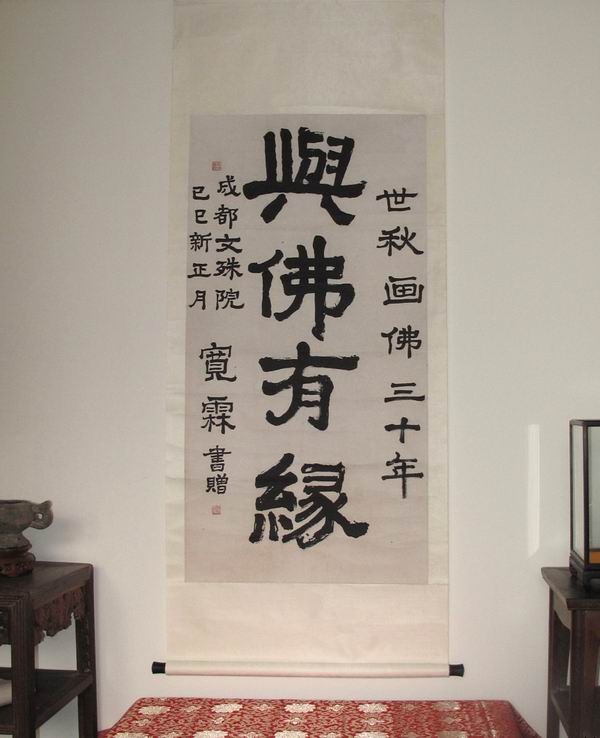 世秋画佛三十年
與佛有緣
成都文殊院
己巳新正月
寬霖書贈